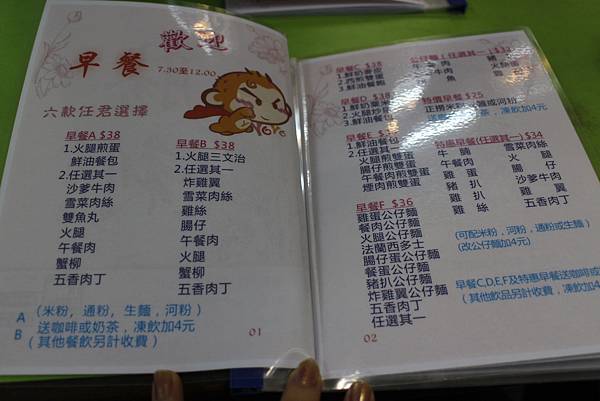 歡迎
早餐
7.30至12.00
六款任君選擇
早餐A $38
1.火腿煎蛋
鮮油餐包
2.任選其一
沙爹牛肉
雪菜肉絲
雙魚丸
火腿
午餐肉
蟹柳
五香肉丁
早餐B $38
1.火腿三文治
2.任選其一
炸雞翼
雪菜肉絲
雞絲
腸仔
午餐肉
火腿
蟹柳
五香肉丁
Love
A (米粉，通粉，生麵，河粉)
B 送咖啡或奶茶，凍飲加4元
(其他餐飲另計收費)
01
早餐C $38
1.鮮奶麥皮
2.西煎雙蛋
3.鮮油餐包
早餐D
1.鮮奶粟米
2.火腿炒蛋
3.鮮油餐包
早餐E
1.鮮油餐包
2.任選其一
火腿煎雙蛋
腸仔煎雙蛋
午餐肉煎雙蛋
煙肉煎雙蛋
早餐F $36
雞蛋公仔麵
餐肉公仔麵
火腿公仔麵
法蘭西多士
腸仔蛋公仔麵
餐蛋公仔麵
豬扒公仔麵
炸雞翼公仔麵
五香肉丁
任選其一
公仔麵(任選其一)
特價早餐 $25
送咖啡或奶茶，凍飲加4元
特惠早餐(任選其一) $34
牛 腩
午餐肉
雞 蛋
豬 扒
雞 扒
雞 絲
雪菜肉絲
火 腿
腸 仔
沙爹牛肉
雞 翼
五香肉丁
(可配米粉，河粉，通粉或生麵)
(改公仔麵加4元)
早餐C,D,E,F及特惠早餐送咖啡或
(其他飲品另計收費，凍飲加
02